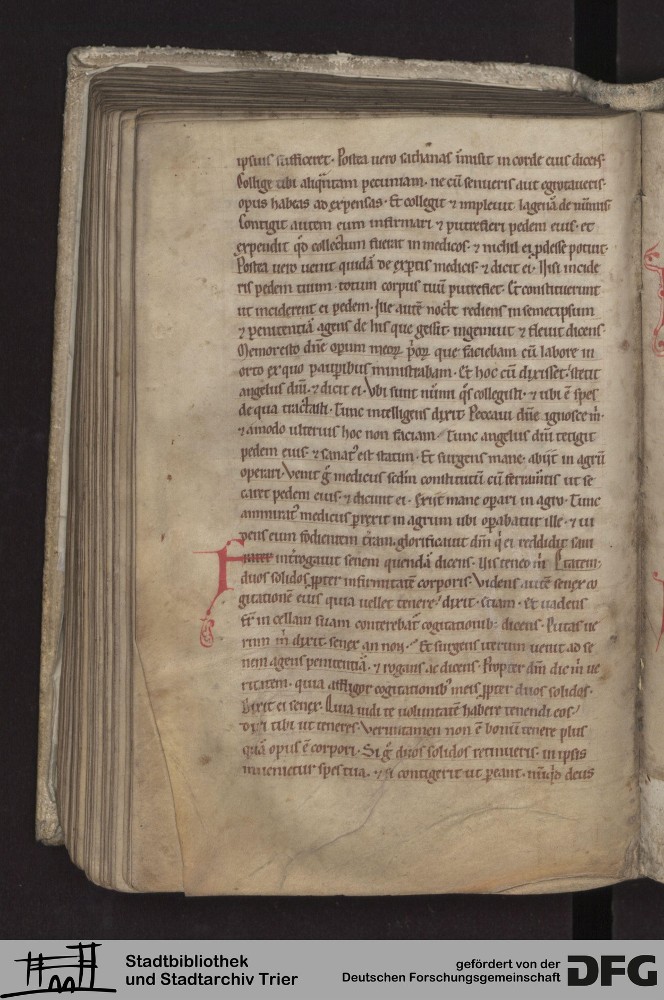 ipsius sufficeret. Postea uero sathanas inmisit in corde eius dicens.
Collige tibi aliqntam pecuniam. ne cū senueris aut egrotaueris.
opus habeas ad expensas. Et collegit ⁊ impleuit lagenā de nūmis
Contigit autem eum infirmari ⁊ putrefieri pedem eius. et
expendit qd collectum fuerat in medicos. ⁊ nichil ei pdesse potuit.
Postea uero uenit quidā de exptis medicis ⁊ dicit ei. Nisi incide
ris pedem tuum. totum corpus tuū putrefiet. Et constituerunt
ut inciderent ei pedem. Ille autē nocte rediens in semetipsum
⁊ penitentiā agens de his que gessit. ingemuit ⁊ fleuit dicens.
Memor esto dn̄e opum meoꝝ poꝝ que faciebam cū labore in
orto ex quo paupibus ministrabam. Et hoc cū dixisset. stetit
angelus dm̄. ⁊ dicit ei. Vbi sunt nūmi qs collegisti. ⁊ ubi ē spes
de qua tractasti. Tunc intelligens dixit. Peccaui dn̄e ignosce m̄.
⁊ amodo ulterius hoc non faciam. Tunc angelus dm̄ tetigit
pedem eius. ⁊ sanatꝰ est statim. Et surgens mane. abiit in agrū
operari. Venit g medicus scdm constitutū cū ferramtis ut se
caret pedem eius. ⁊ dicunt ei. Exiit mane opari in agro. Tunc
ammiratꝰ medicus prexit in agrum ubi opabatur ille. ⁊ ui
dens eum fodientem tram. glorificauit dm̄ q ei reddidit sani
Frater introgauit senem quendā dicens. Uis teneo m̄ tatem.
duos solidos ppter infirmitatē corporis. Videns autē senex co
gitationē eius quia uellet tenere. dixit. etiam. Et uadens
fr̄ in cellam suam conterebat cogitationibꝰ dicens. Putas ue
rum m̄ dixit senex an non. Et surgens iterum uenit ad se
nem agens penitentiā. ⁊ rogans ac dicens. Propter dm̄ dic m̄ ue
ritatem. quia affligor cogitationibꝰ meis ppter duos solidos.
Dixit ei senex. Quia uidi te uoluntatē habere tenendi eos.
dixi tibi ut teneres. Veruntamen non ē bonū tenere plus
quā opus ē corpori. Si g duos solidos retinueris. in ipsis
inuenietur spes tua. ⁊ si contigerit ut peant. nūqd deus
Stadtbibliothek
und Stadtarchiv Trier
gefördert von der
Deutschen Forschungsgemeinschaft
DFG